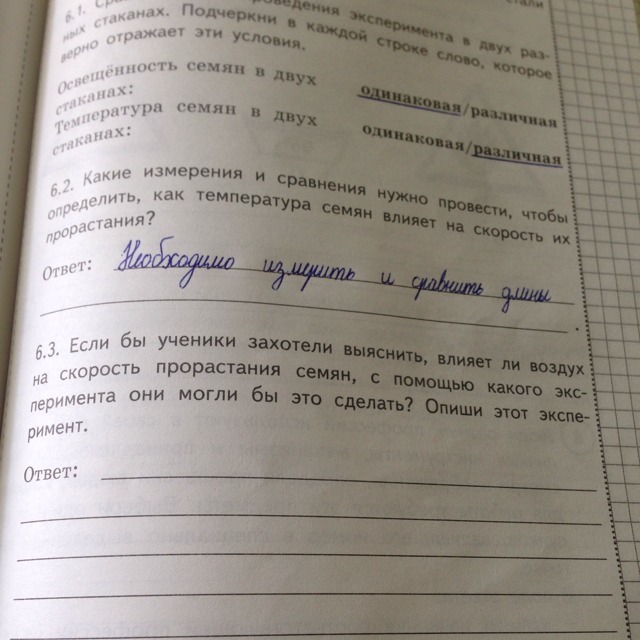 стали
6.1. проведения эксперимента в двух раз-
ных стаканах. Подчеркни в каждой строке слово, которое
верно отражает эти условия.
Освещённость семян в двух
стаканах: одинаковая/различная
Температура семян в двух
стаканах: одинаковая/различная
6.2. Какие измерения и сравнения нужно провести, чтобы
определить, как температура семян влияет на скорость их
прорастания?
Ответ: Необходимо измерить и сравнить длины
.
6.3. Если бы ученики захотели выяснить, влияет ли воздух
на скорость прорастания семян, с помощью какого экс-
перимента они могли бы это сделать? Опиши этот экспе-
римент.
Ответ: